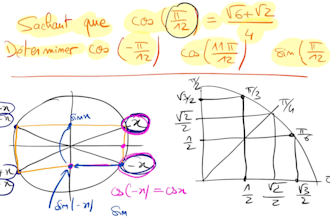 Sachant que cos (π/12) = √6+√2/4
Déterminer cos (-π/12) cos (11π/12) sin (π/12)
sin x
-x
sin(-x)
cos(-x) = cos x
sin
π/2
π/3
π/4
π/6
√3/2
√2/2
1/2
1/2 √2/2 √3/2